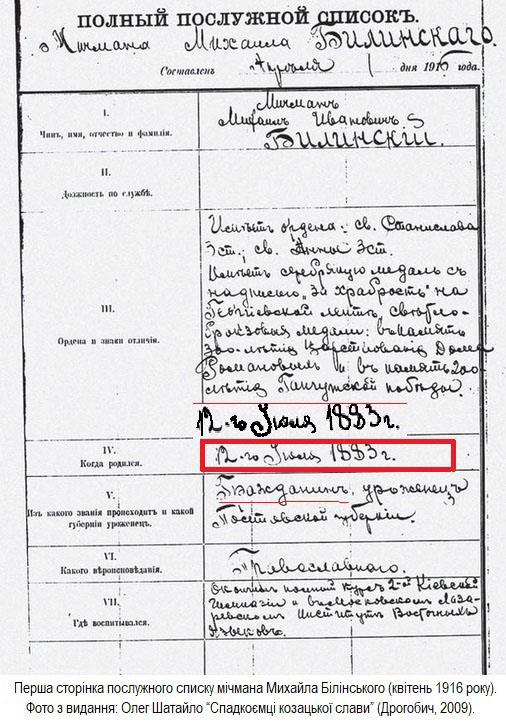 ПОЛНЫЙ ПОСЛУЖНОЙ СПИСОКЪ.
Мичмана Михаила Билинскаго.
Составленъ Апрѣля 1 дня 1916 года.
I.
Чинъ, имя, отчество и фамилія.
Мичманъ
Михаилъ Ивановичъ
Билинскій.
II.
Должность по службѣ.
III.
Ордена и знаки отличія.
Имѣетъ ордена: св. Станислава
3 ст.; св. Анны 3 ст.
Имѣетъ серебряную медаль съ
надписью „За храбрость" на
Георгіевской лентѣ, свѣтло-
бронзовыя медали: въ память
300-лѣтія Царствованія Дома
Романовыхъ и въ память 200-
лѣтія Гангутской победы.
12-го Іюля 1883 г.
IV.
Когда родился.
12-го Іюля 1883 г.
V.
Изъ какого званія происходитъ и какой
губерніи уроженецъ.
Гражданинъ, уроженецъ
губерніи.
VI.
Какого вѣроисповѣданія.
Православнаго.
VII.
Гдѣ воспитывался.
Окончилъ полный курсъ 2-ой Кіевской
Гимназіи и въ Московскомъ Лаза-
ревскомъ Институтѣ Восточныхъ
Языковъ.
Перша сторінка послужного списку мічмана Михайла Білінського (квітень 1916 року).
Фото з видання: Олег Шатайло “Спадкоємці козацької слави” (Дрогобич, 2009).